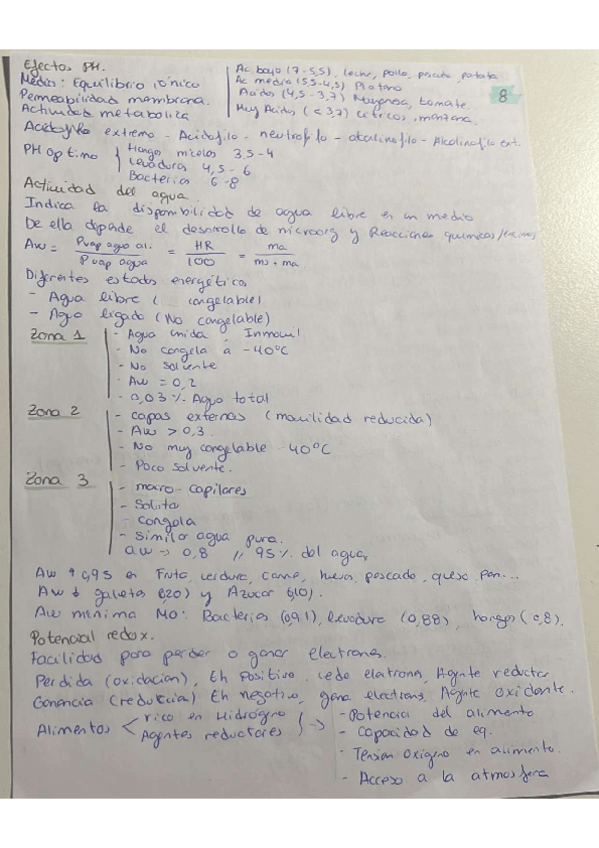 Efectos PH.
Medios: Equilibrio iónico
Permeabilidad membrana.
Actividad metaboliza
Ac bajo (7-5,5), leche, pollo, pescado, patata
Ac media (5,5-4,5) Platano
Acidos (4,5-3,7) Mayonesa, tomate.
Muy Acidos (<3,7) Citricos, manzana.
8
extremo - Acidofilo - neutrofilo - alcalinofilo - Alcalinofilo ext.
PH optimo
Hongos micelos 3,5-4
Levaduras 4,5-6
Bacterias 6-8
Actividad del agua
Indica la disponibilidad de agua libre en un medio
De ella depende el desarrollo de microorg y Reacciones quimicas/
Aw = Pvap agua al. / Pvap agua = HR / 100 = ma / ms + ma
Diferentes estados energéticos
- Agua libre ( congelable)
- Agua ligada (No congelable)
Zona 1
- Agua unida. Inmovil
- No congela a -40ºC
- No solvente
- Aw = 0,2
- 0,03% Agua total
Zona 2
- capas externas (movilidad reducida)
- Aw > 0,3.
- No muy congelable -40ºC
- Poco solvente.
Zona 3
- macro-capilares
- Solvta
- Congela
- Similar agua pura.
aw => 0,8 // 95% del agua
Aw ↑ 0,95 en Fruta, verdura, carne, huevo, pescado, queso, pan...
Aw ↓ galletas (0,20) y Azucar 0,10).
Aw minima MO: Bacterias (0,91), levadura (0,88), hongos (0,8).
Potencial redox.
Facilidad para perder o ganar electrones.
Perdida (oxidación), Eh Positivo. cede electrons, Agente reductor
Ganancia (reducción) Eh negativo, gana electrons, Agente oxidante.
Alimentos < rico en Hidrógno
Agentes reductores
- Potencia del alimento
- Capacidad de eq.
- Tension Oxigeno en alimento.
- Acceso a la atmosfera